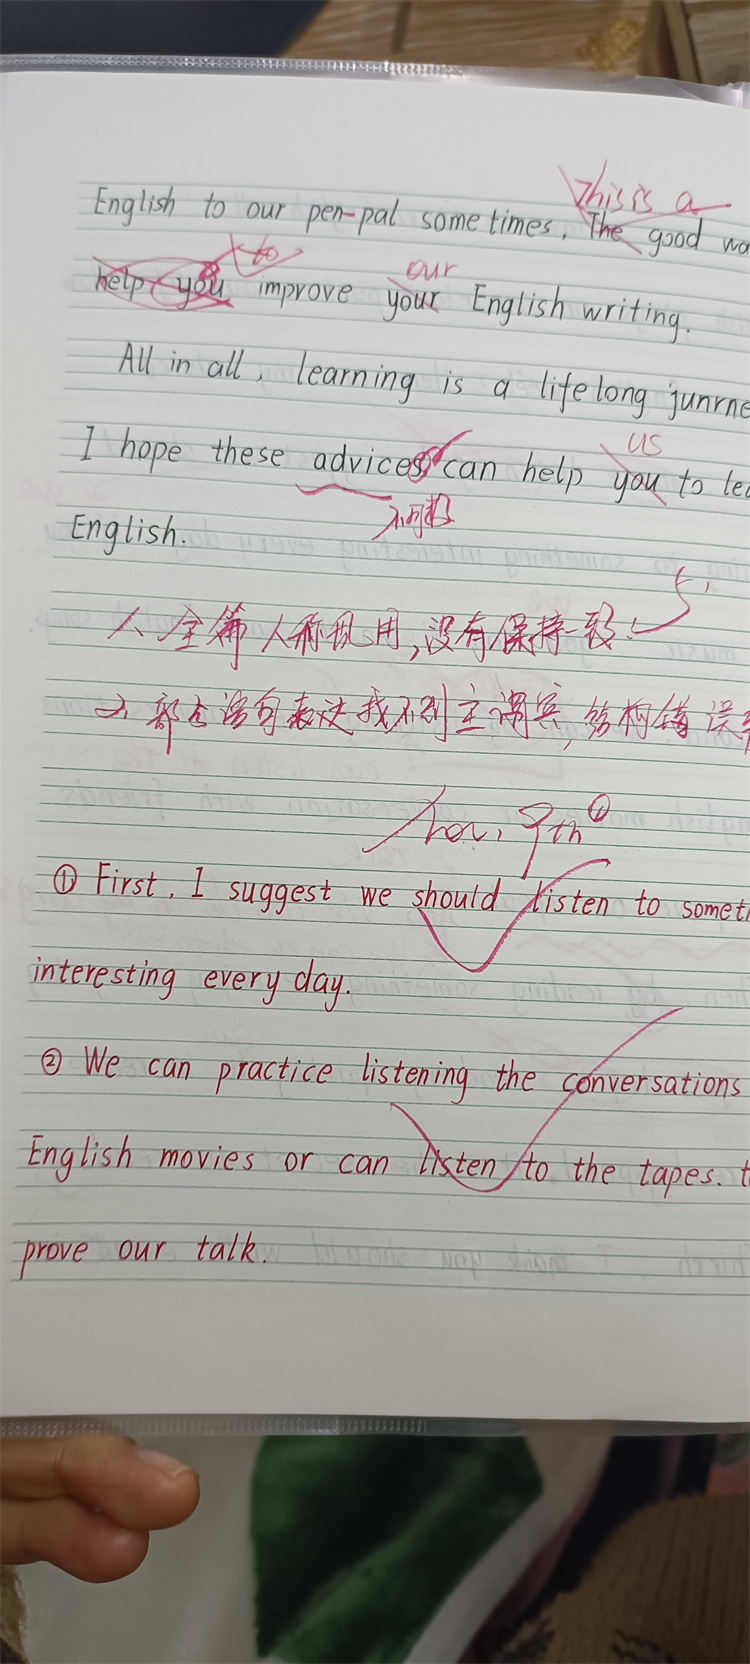 This is a
English to our pen-pal some times. The good wa
to
help you improve your English writing.
our
All in all, learning is a lifelong junrne
I hope these advices can help you to lea
us
不可数
English.
5'
1、全篇人称混用,没有保持一致.
2、部分语句表达找不到主谓宾,结构错误
Nov. 9th
① First, I suggest we should listen to someth
interesting every day.
② We can practice listening the conversations
English movies or can listen to the tapes. t
prove our talk.